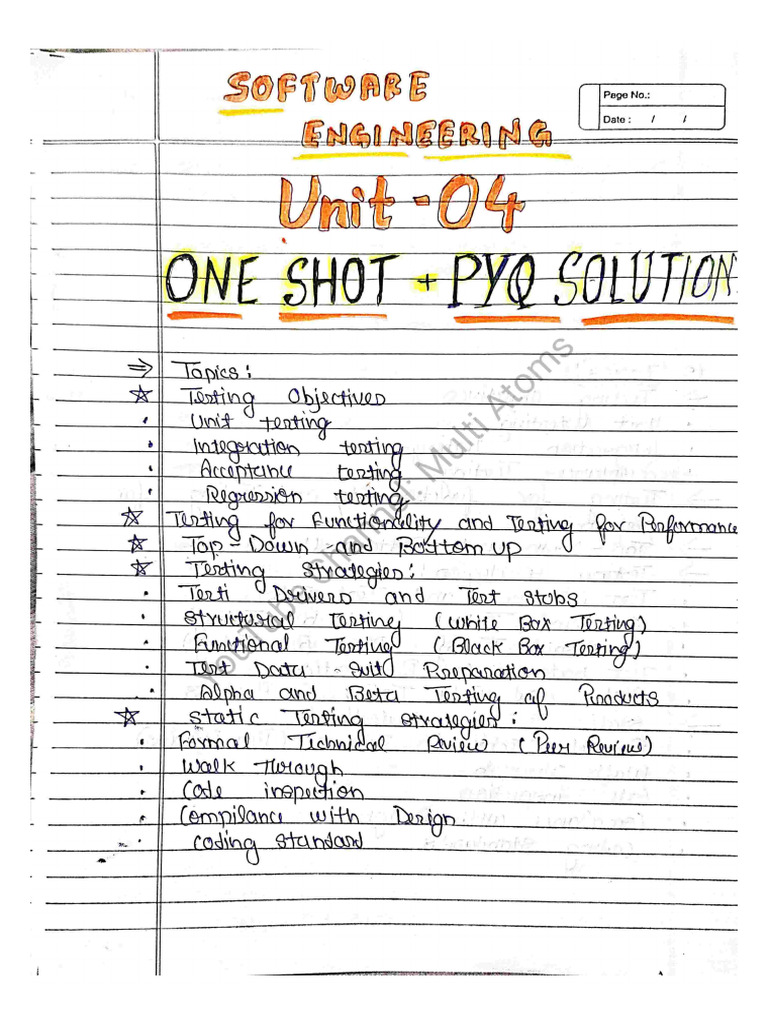 SOFTWARE
ENGINEERING
Page No.:
Date : / /
Unit -04
ONE SHOT + PYQ SOLUTION
⇒ Topics:
☆ Testing Objectives
• Unit testing
• Integration testing
• Acceptance testing
• Regression testing
☆ Testing for Functionality and Testing for Performance
☆ Top-Down and Bottom up
☆ Testing Strategies:
• Test Drivers and Test Stubs
• Structural Testing (White Box Testing)
• Functional Testing (Black Box Testing)
• Test Data Suit Preparation
• Alpha and Beta Testing of Products
☆ Static Testing Strategies:
• Formal Technical Review (Peer Review)
• Walk Through
• Code inspection
• Compilance with Design
• Coding Standard
Youtube Channel: Multi Atoms